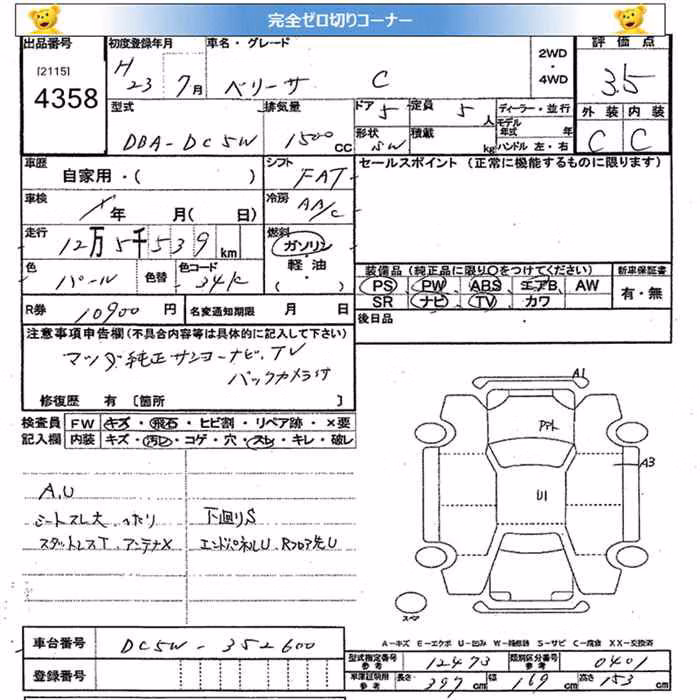 完全ゼロ切りコーナー
出品番号 初度登録年月 車名・グレード 2WD・4WD 評価点
[2115]
4358
H 23 7月 ベリーサ C 3.5
外装 内装
C C
型式 排気量 ドア 定員 ディーラー・並行
DBA-DC5W 1500 CC 5 5人 モデル年式 年
形状 積載 ハンドル 左・右
SW kg
車歴 シフト セールスポイント (正常に機能するものに限ります)
自家用・( ) FAT
車検 冷房
年 月( 日) AA/C
走行 燃料
12万5千539km ガソリン・軽油・( )
色 色替 色コード
パール 34K
装備品(純正品に限り○をつけてください) 新車保証書
PS PW ABS エアB AW 有・無
SR ナビ TV カワ
R券 10900円 名変通知期限 月 日
後日品
注意事項申告欄(不具合内容等は具体的に記入して下さい)
マツダ純正サンヨーナビ、TV
バックカメラ付
修復歴 有 [箇所 ]
検査員 FW キズ・飛石・ヒビ割・リペア跡・×要
記入欄 内装 キズ・汚レ・コゲ・穴・スレ・キレ・破レ
A1
PPL
A3
U1
A.U
シートスレ大、ヘタリ 下回りS
スタットレスT、アンテナX エンドパネルU、Rフロア先U
スペア
A-キズ E-エクボ U-凹み W-補修跡 S-サビ C-腐食 XX-交換済
車台番号 DC5W-352600
型式指定番号 参考 12473 類別区分番号 参考 0401
登録番号
車庫証明用 参考 長さ 397cm 幅 169cm 高さ 153cm